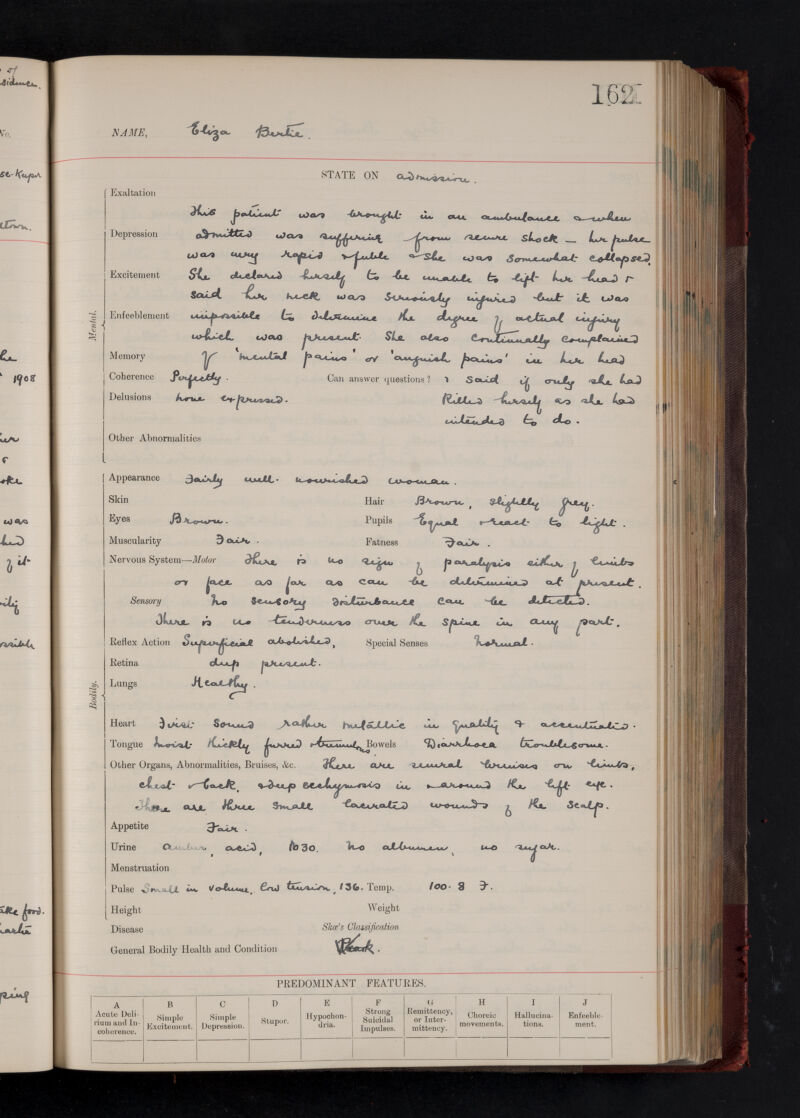 162
NAME, Eliza Bertie.
STATE ON admission.
Exaltation
This patient was brought in an ambulance & when
Depression admitted was suffering from severe shock – her pulse
was very rapid & feeble & she was somewhat collapsed.
Excitement She declared herself to be unable to lift her head &
said her neck was seriously injured but it was
Enfeeblement impossible to determine the degree of actual injury
which was present. She also continually complained
Memory of 'mental pains' or 'anguish pains' in her head
Coherence Perfectly. Can answer questions? & said if only she had
Delusions none expressed. killed herself as she had
intended to do.
Other Abnormalities
Mental.
Appearance Fairly well-nourished woman.
Skin Hair Brown, slightly grey.
Eyes Brown. Pupils Equal & react to light.
Muscularity Fair. Fatness Fair.
Nervous System—Motor There is no sign of paralysis either of limbs
or face as far as can be determined at present.
Sensory No sensory disturbance can be detected.
There is no tenderness over the spine in any part.
Reflex Action Superficial abolished, Special Senses Normal.
Retina deep present.
Lungs Healthy.
Bodily.
Heart First sound rather metallic in quality & accentuated.
Tongue Moist thickly furred & tremulous Bowels Diarrhoea troublesome.
Other Organs, Abnormalities, Bruises, &c. There are several bruises on limbs,
chest & back, & deep ecchymosis in & around the left eye.
There are three small lacerated wounds of the scalp.
Appetite Fair.
Urine amber, acid, 1030. No albumen, no sugar.
Menstruation
Pulse Small in volume, low tension, 136. Temp. 100.8 F.
Height Weight
Disease Skae's Classification
General Bodily Health and Condition Weak.
PREDOMINANT FEATURES.
A B C D E F G H I J
Acute Delirium and Incoherence. Simple Excitement. Simple Depression. Stupor. Hypochondria. Strong Suicidal Impulses. Remittency, or Intermittency. Choreic movements. Hallucinations. Enfeeblement.